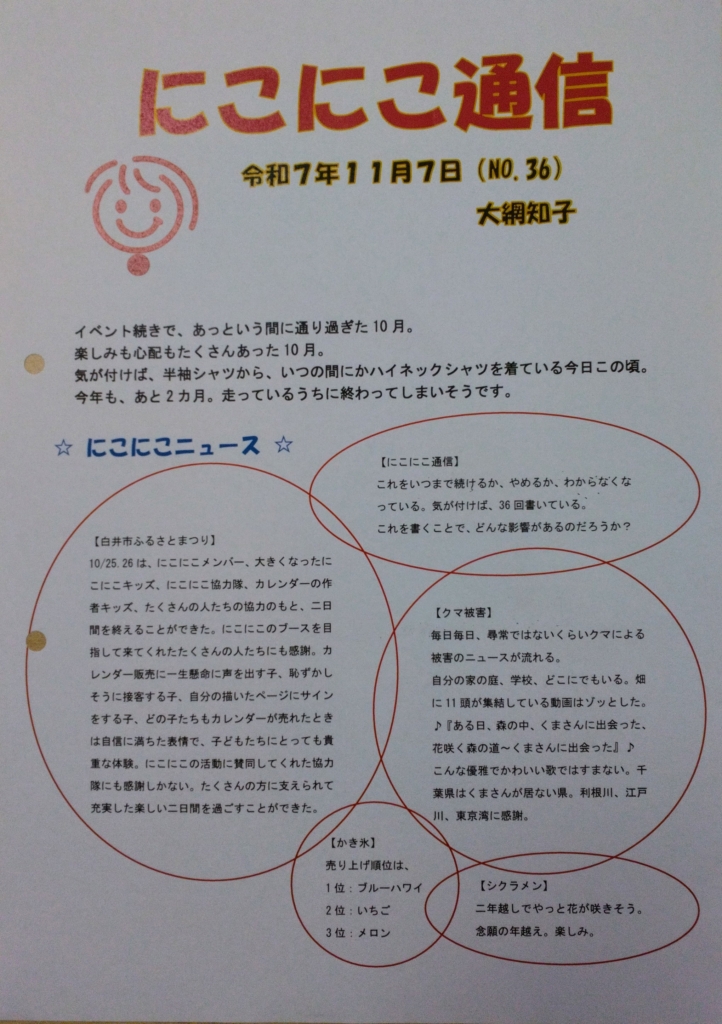 にこにこ通信
令和7年11月7日(NO.36)
大網知子
イベント続きで、あっという間に通り過ぎた10月。
楽しみも心配もたくさんあった10月。
気が付けば、半袖シャツから、いつの間にかハイネックシャツを着ている今日この頃。
今年も、あと2カ月。走っているうちに終わってしまいそうです。
☆ にこにこニュース ☆
【にこにこ通信】
これをいつまで続けるか、やめるか、わからなくな
っている。気が付けば、36回書いている。
これを書くことで、どんな影響があるのだろうか？
【白井市ふるさとまつり】
10/25.26は、にこにこメンバー、大きくなったに
こにこキッズ、にこにこ協力隊、カレンダーの作
者キッズ、たくさんの人たちの協力のもと、二日
間を終えることができた。にこにこのブースを目
指して来てくれたたくさんの人たちにも感謝。カ
レンダー販売に一生懸命に声を出す子、恥ずかし
そうに接客する子、自分の描いたページにサイン
をする子、どの子たちもカレンダーが売れたとき
は自信に満ちた表情で、子どもたちにとっても貴
重な体験。にこにこの活動に賛同してくれた協力
隊にも感謝しかない。たくさんの方に支えられて
充実した楽しい二日間を過ごすことができた。
【クマ被害】
毎日毎日、尋常ではないくらいクマによる
被害のニュースが流れる。
自分の家の庭、学校、どこにでもいる。畑
に11頭が集結している動画はゾッとした。
♪『ある日、森の中、くまさんに出会った、
花咲く森の道～くまさんに出会った』♪
こんな優雅でかわいい歌ではすまない。千
葉県はくまさんが居ない県。利根川、江戸
川、東京湾に感謝。
【かき氷】
売り上げ順位は、
1位：ブルーハワイ
2位：いちご
3位：メロン
【シクラメン】
二年越しでやっと花が咲きそう。
念願の年越え。楽しみ。